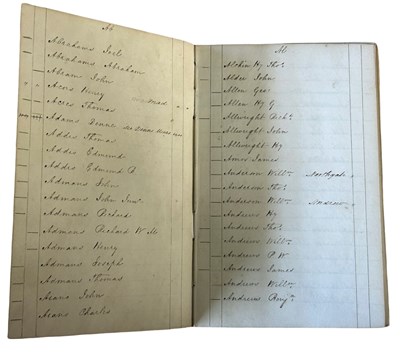 Abrahams Joel
Abrahams Abraham
Abrams John
Acres Henry
Acres Thomas
Adams Dennis
Addes Thomas
Addes Edmund
Addes Edmund B
Admans John
Admans John Junr
Admans Richard
Admans Richard Wm
Admans Henry
Admans Joseph
Admans Thomas
John
Charles
Al
Hy Thos
Alder John
Allen Geo
Allen Hy G
Allwright Richd
Allwright John
Allwright Hy
Amos James
Anderson Willm Northgate
Anderson Thos
Anderson Willm
Andrews Hy
Andrews Thos
Andrews Willm
Andrews P W
Andrews James
Andrews Willm
Andrews Benjn